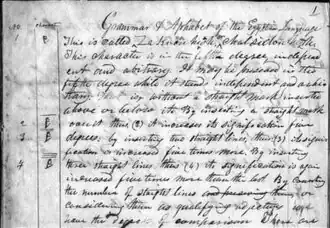 1
No. Character Grammar & Alphabet of the Egyptian Language
1 This is called Za Kioan hiash, Chalsidon hitch
This character is in the fifth degree, independ
ent and arbitrary. It may be preserved in this
fifth degree while it stands independent and arbi
trary That is, without a straight mark inserted
above or below it. By inserting a straight mark
2 over it thus (2) it increases its signification five
degrees: by inserting two straight lines, thus: (3) its signi
3 fication is increased five times more. By inserting
three straight lines thus (4) its signification is again
4 increased five times more than the last. By counting
the numbers of straight lines and preserving them, or
considering them as qualifying adjectives we
have the degrees of comparison There are